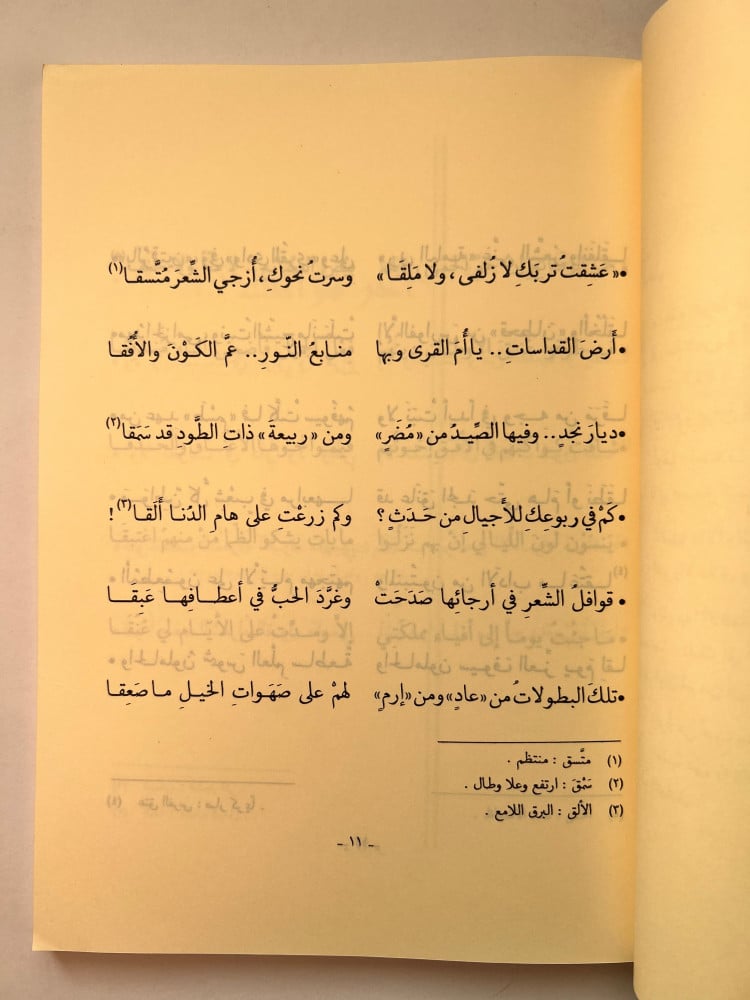 • «عَشِقتُ تربَكِ لا زُلفى، ولا مَلِقَا» وسرتُ نحوكِ، أُزجي الشِّعرَ مُتَّسقا(١)
• أرضَ القداساتِ.. يا أُمَ القرى وبها منابعُ النّورِ.. عمَّ الكَوْنَ والأُفُقا
• ديارَ نجدٍ.. وفيها الصِّيدُ من «مُضَرٍ» ومن «ربيعةَ» ذاتِ الطَّودِ قد سَمَقا(٢)
• كَمْ في ربوعكِ للأجيالِ من حَدَثٍ؟ وكم زرعْتِ على هامِ الدُنا أَلَقا(٣)!
• قوافلُ الشِّعرِ في أرجائِها صَدَحَتْ وغرَّدَ الحبُّ في أعطافِها عَبِقَا
• تلكَ البطولاتُ من «عادٍ» ومن «إرمٍ» لهمْ على صَهَواتِ الخيلِ ما صَعِقا
(١) متَّسق : منتظم .
(٢) سَمْقَ : ارتفع وعلا وطال .
(٣) الألق : البرق اللامع .
- ١١ -